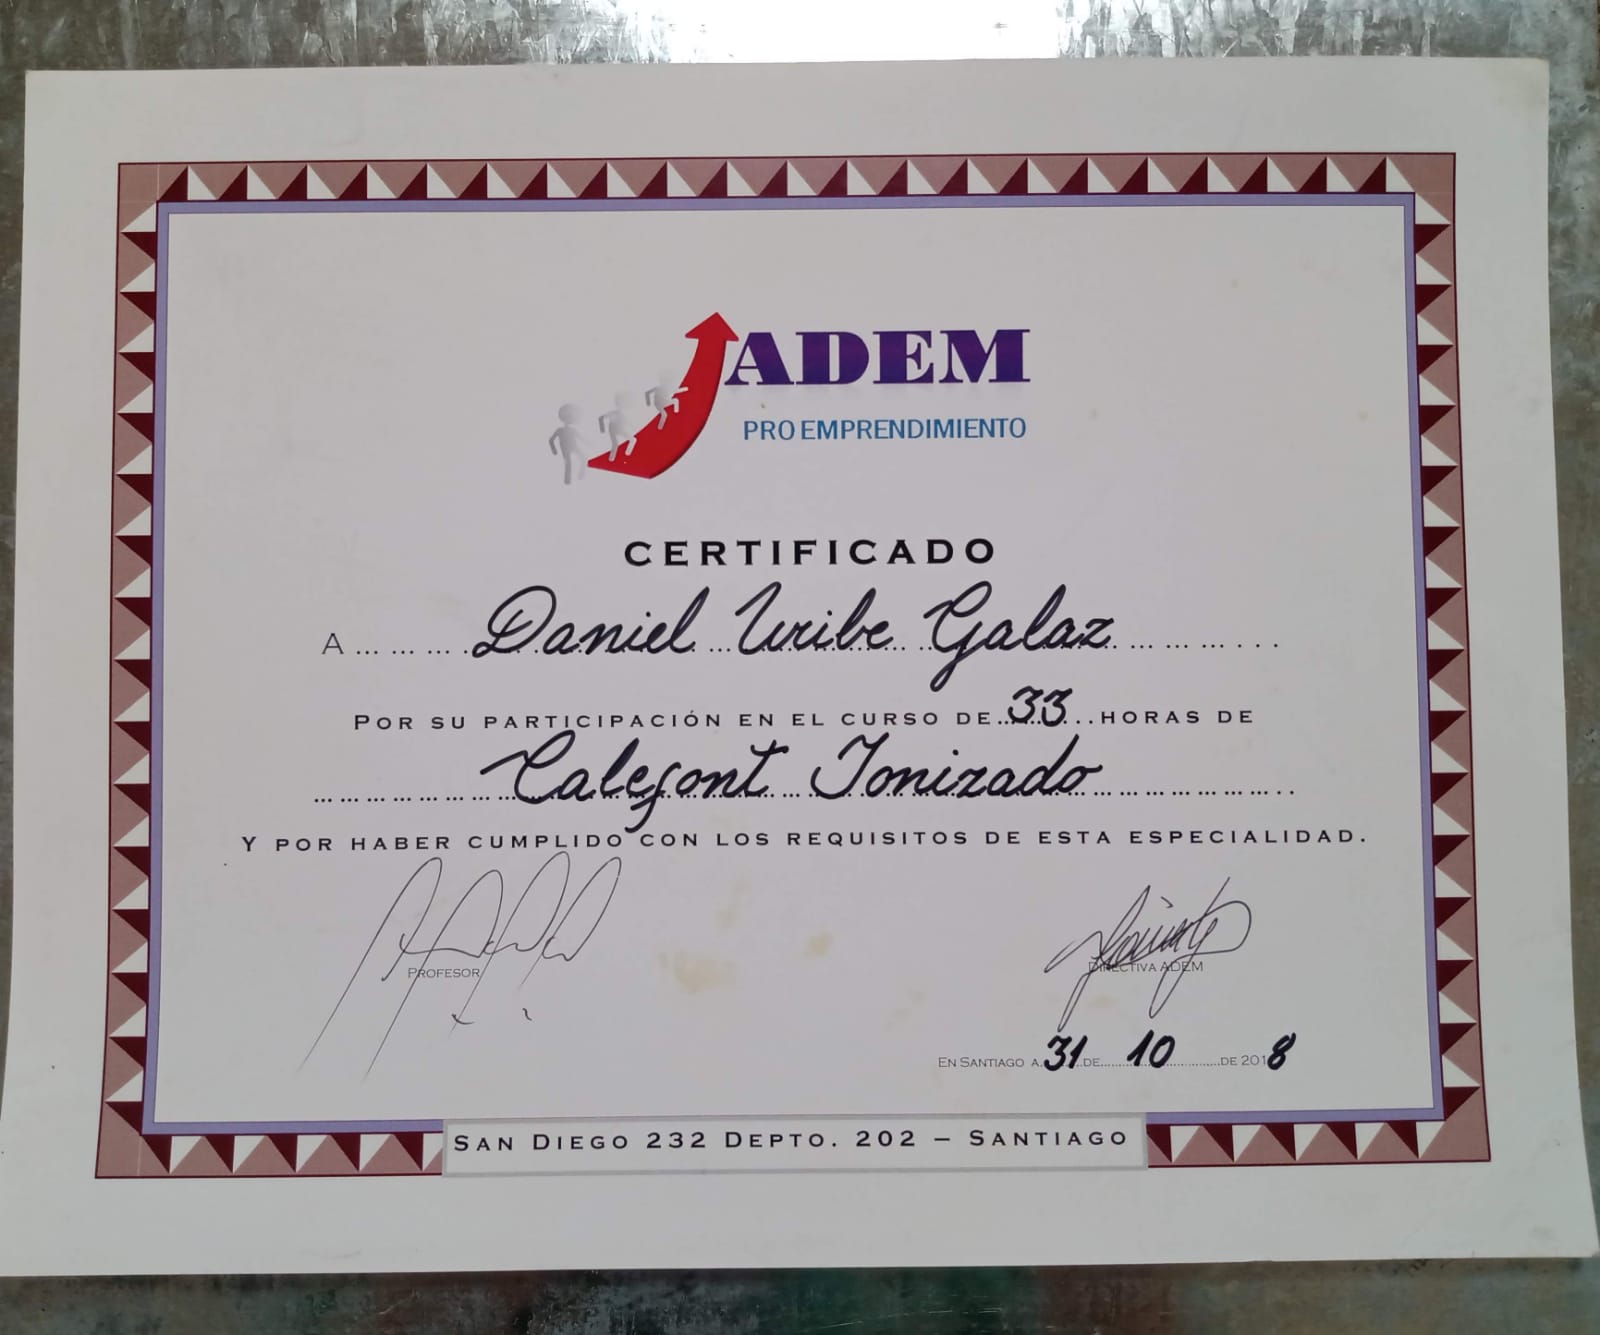 ADEM
PRO EMPRENDIMIENTO
CERTIFICADO
A ... ... ... . Daniel Uribe Galaz ... ... ... . . .
POR SU PARTICIPACIÓN EN EL CURSO DE 33 HORAS DE
Calefont Ionizado
Y POR HABER CUMPLIDO CON LOS REQUISITOS DE ESTA ESPECIALIDAD.
PROFESOR
DIRECTIVA ADEM
EN SANTIAGO A 31 DE 10 DE 2018
SAN DIEGO 232 DEPTO. 202 – SANTIAGO